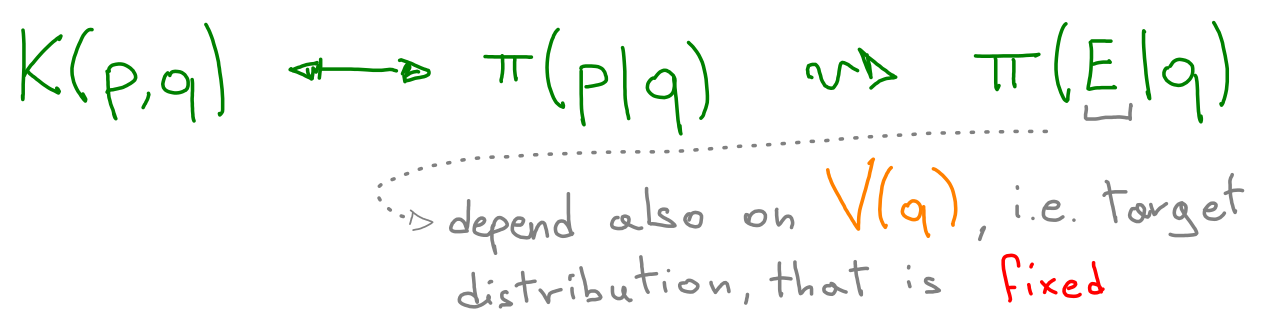 K(p,q) ↔ π(p|q) ⇝ π(E|q)
depend also on V(q), i.e. target
distribution, that is fixed